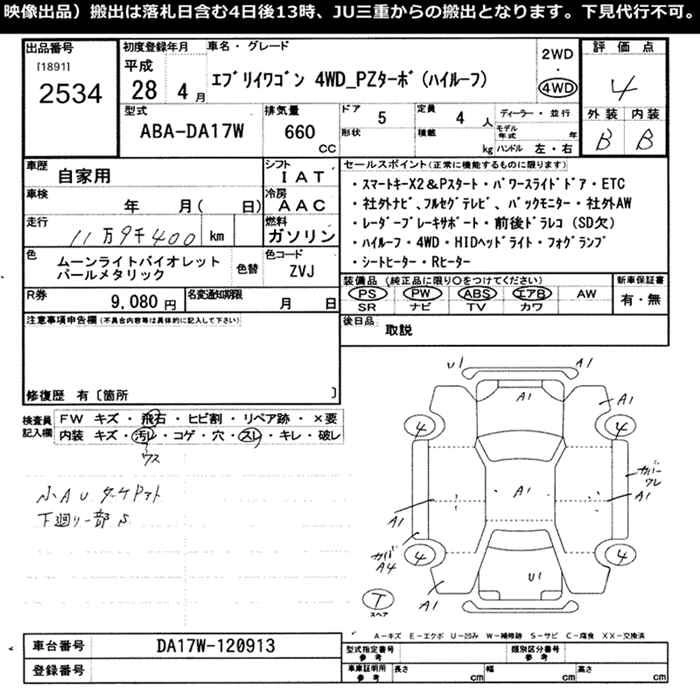 映像出品）搬出は落札日含む4日後13時、JU三重からの搬出となります。下見代行不可。
出品番号
[1891]
2534
初度登録年月
平成
28 4月
車名・グレード
ｴﾌﾞﾘｲﾜｺﾞﾝ 4WD_PZﾀｰﾎﾞ(ﾊｲﾙｰﾌ)
2WD
4WD
評価点
4
型式
ABA-DA17W
排気量
660
cc
ドア
5
形状
定員
4 人
積載
kg
ディーラー・並行
モデル年式 年
ハンドル 左・右
外装 内装
B B
車歴
自家用
シフト
IAT
車検
年 月( 日)
冷房
AAC
走行
11万9千400 km
燃料
ガソリン
色
ムーンライトバイオレット
パールメタリック
色替
色コード
ZVJ
R券
9,080円
名変通知期限
月 日
セールスポイント(正常に機能するものに限ります)
・ｽﾏｰﾄｷｰX2&Pｽﾀｰﾄ・ﾊﾟﾜｰｽﾗｲﾄﾞﾄﾞｱ・ETC
・社外ﾅﾋﾞ､ﾌﾙｾｸﾞﾃﾚﾋﾞ、ﾊﾞｯｸﾓﾆﾀｰ・社外AW
・ﾚｰﾀﾞｰﾌﾞﾚｰｷｻﾎﾟｰﾄ・前後ﾄﾞﾗﾚｺ(SD欠)
・ﾊｲﾙｰﾌ・4WD・HIDﾍｯﾄﾞﾗｲﾄ・ﾌｫｸﾞﾗﾝﾌﾟ
・ｼｰﾄﾋｰﾀｰ・Rﾋｰﾀｰ
装備品(純正品に限り○をつけてください)
PS PW ABS エアB AW
SR ナビ TV カワ
新車保証書
有・無
後日品
取説
注意事項申告欄(不具合内容等は具体的に記入して下さい)
修復歴 有〔箇所 〕
検査員
記入欄
FW キズ・飛石・ヒビ割・リペア跡・×要
内装 キズ・汚レ・コゲ・穴・スレ・キレ・破レ
ワス
小AU タッチアト
下廻リ一部S
U1 A1
A1 A1
4 4
A1
カバーワレ
A1 A1
カバA4
4 4
U1
A1
T
スペア
A-キズ E-エクボ U-凹み W-補修跡 S-サビ C-腐食 XX-交換済
車台番号
DA17W-120913
登録番号
型式指定番号
参考
類別区分番号
参考
車庫証明用
参考
長さ cm
幅 cm
高さ cm